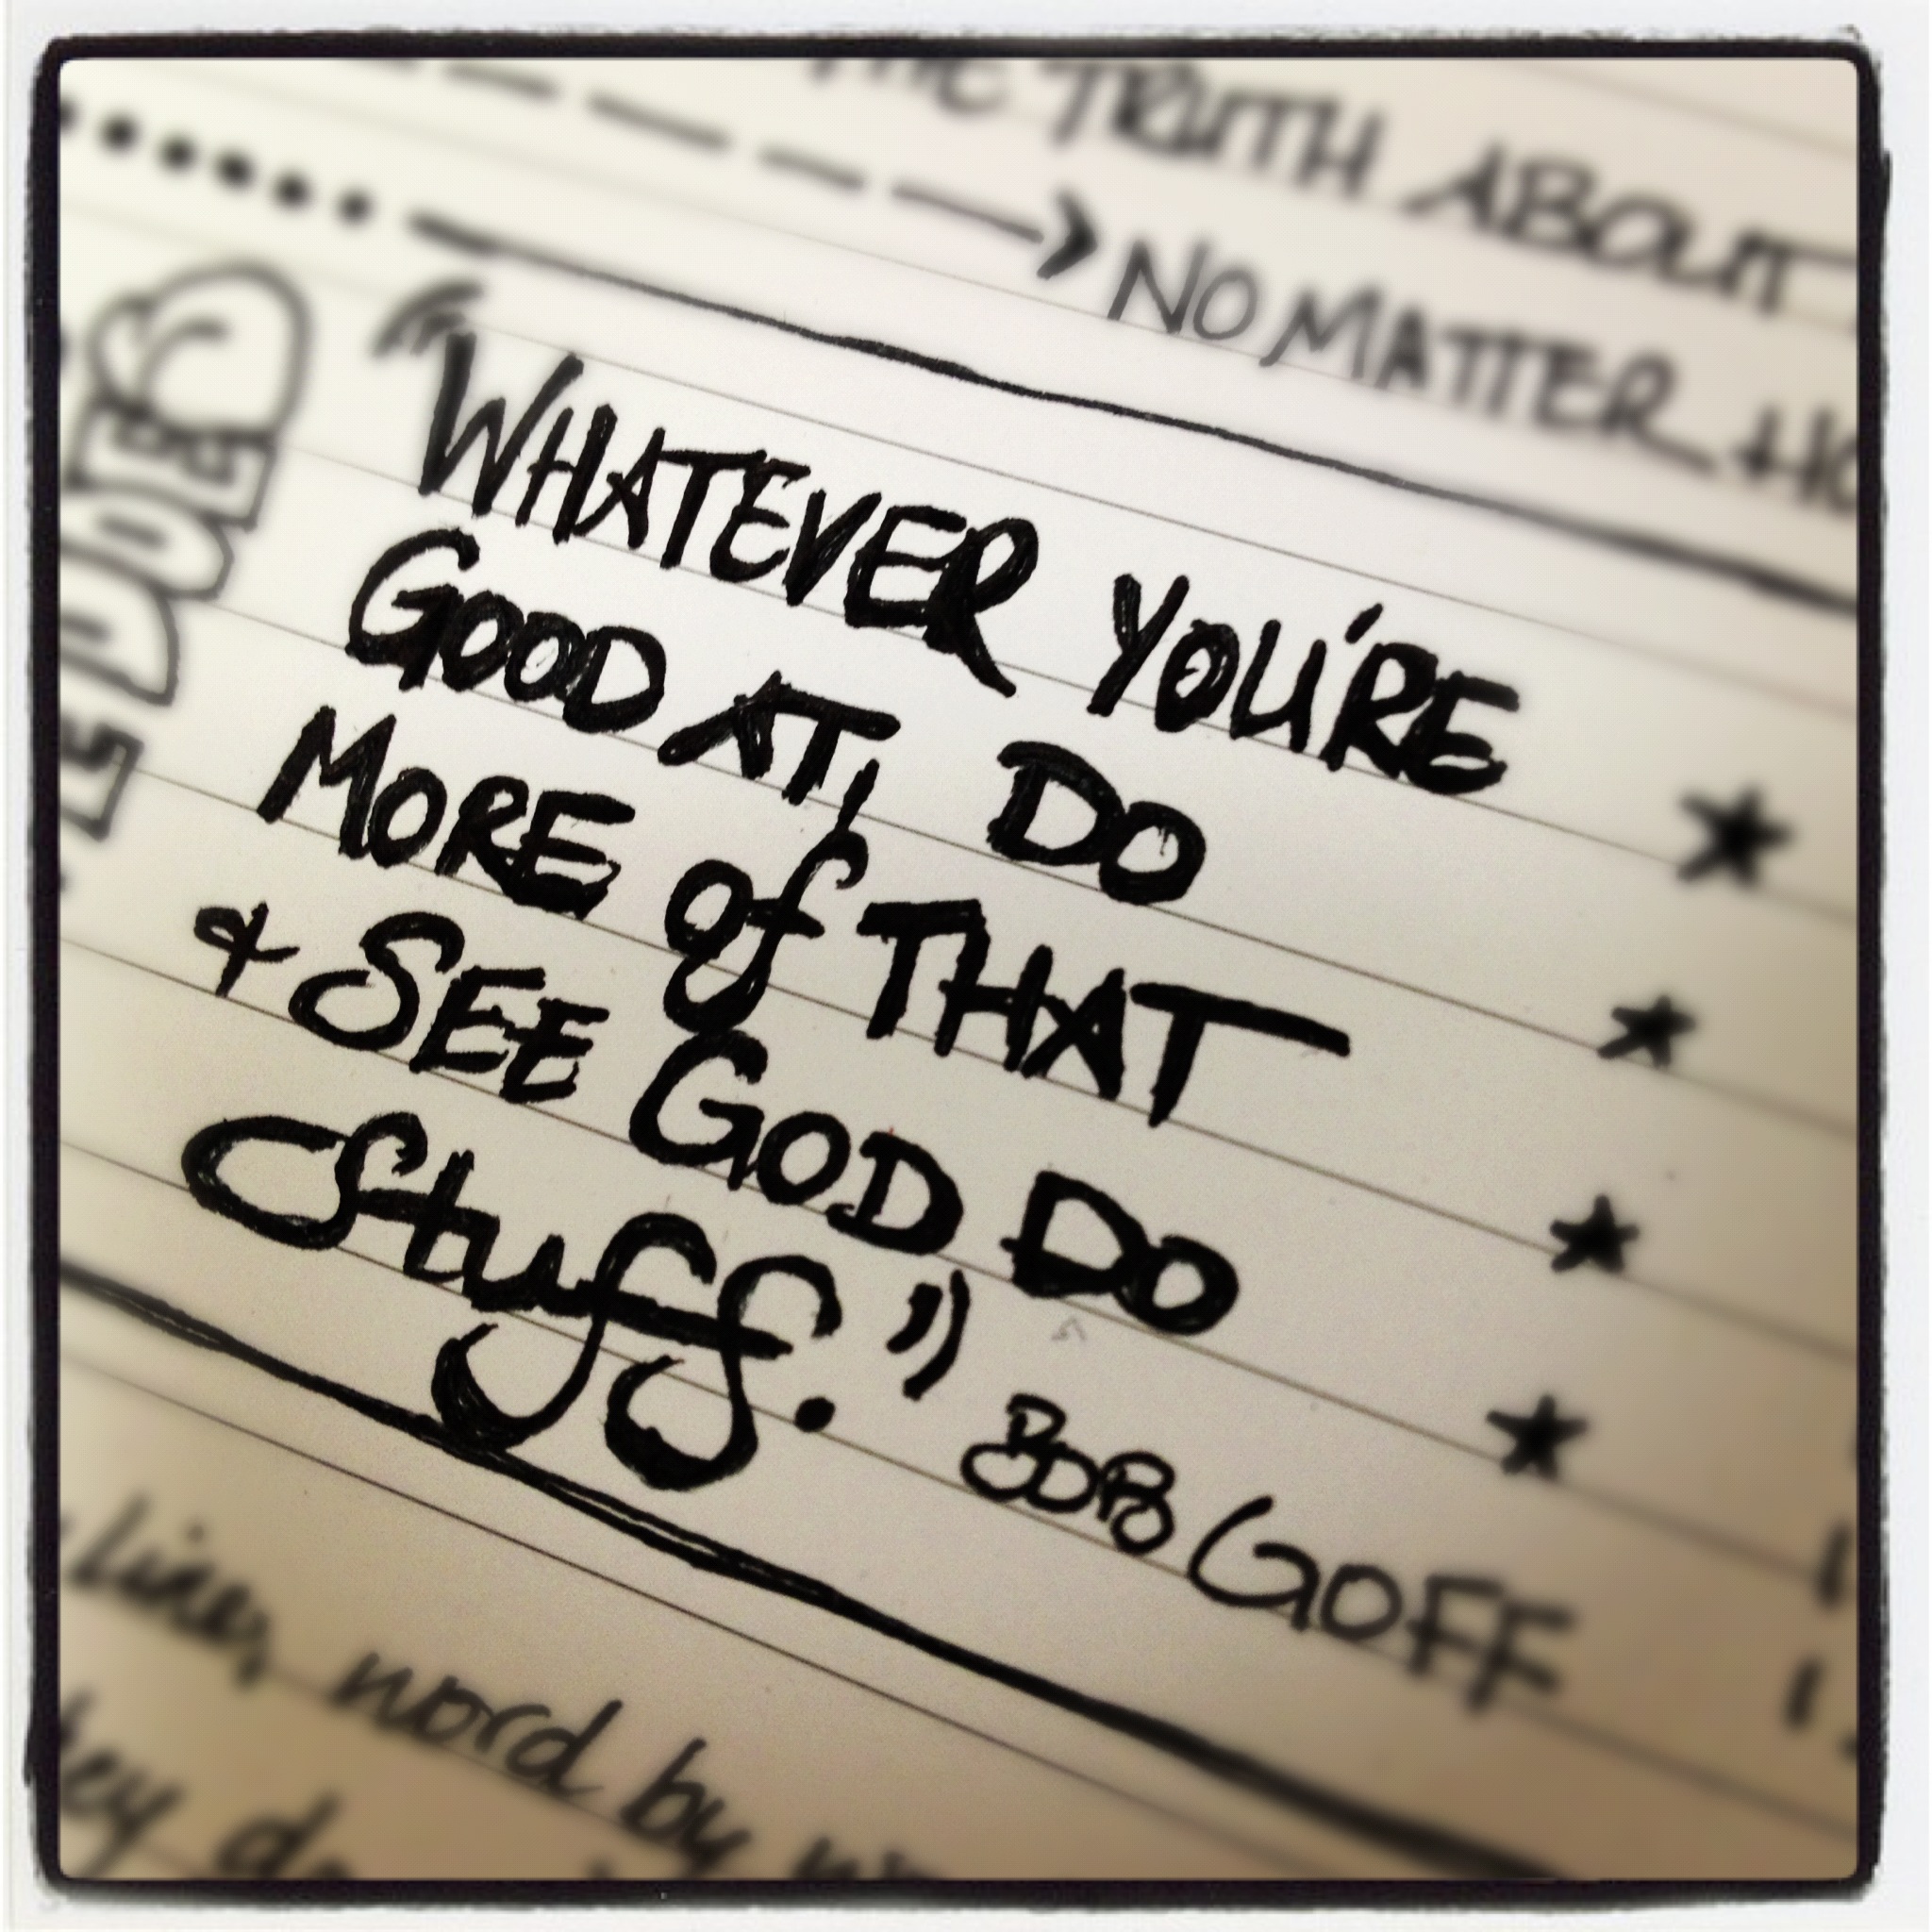 THE TRUTH ABOUT
NO MATTER
"WHATEVER YOU'RE
GOOD AT, DO
MORE of THAT
& SEE GOD DO
Stuff."
BOB GOFF
word by